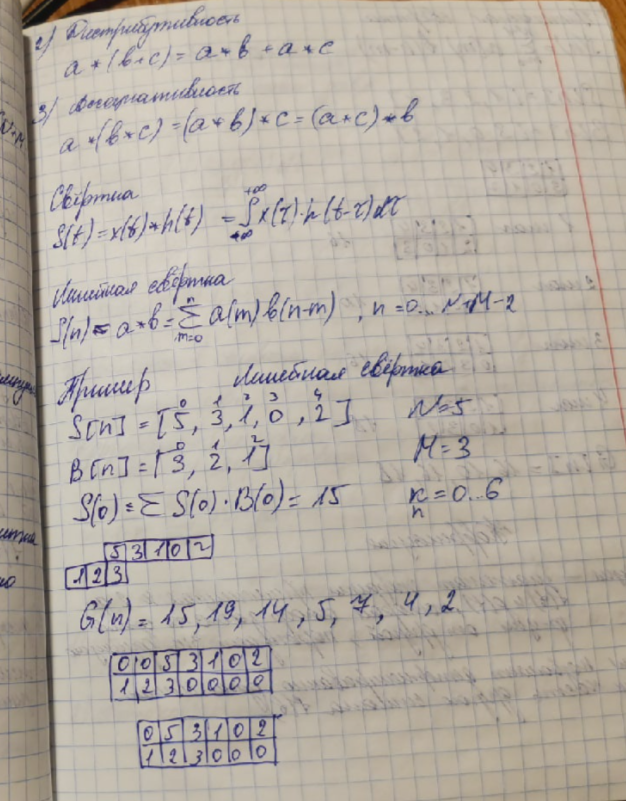 2) Дистрибутивность
a * (b+c) = a * b + a * c
3) Ассоциативность
a * (b * c) = (a * b) * c = (a * c) * b
Свёртка
S(t) = x(t) * h(t) = ∫ x(τ)·h(t-τ)dτ
+∞
-∞
Линейная свёртка
S(n) = a * b = Σ a(m) b(n-m) , n = 0... N+M-2
n
m=0
Пример Линейная свёртка
0 1 2 3 4
S[n] = [5, 3, 1, 0, 2] N=5
0 1 2
B[n] = [3, 2, 1] M=3
S(0) = Σ S(0)·B(0) = 15 k = 0..6
n
5 3 1 0 2
1 2 3
G(n) = 15, 19, 14, 5, 7, 4, 2
0 0 5 3 1 0 2
1 2 3 0 0 0 0
0 5 3 1 0 2
1 2 3 0 0 0